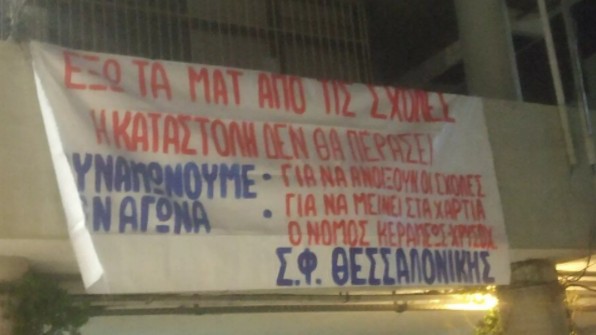 ΕΞΩ ΤΑ ΜΑΤ ΑΠΟ ΤΙΣ ΣΧΟΛΕΣ
Η ΚΑΤΑΣΤΟΛΗ ΔΕΝ ΘΑ ΠΕΡΑΣΕΙ
ΥΝΑΜΩΝΟΥΜΕ • ΓΙΑ ΝΑ ΑΝΟΙΞΟΥΝ ΟΙ ΣΧΟΛΕΣ
ΑΓΩΝΑ • ΓΙΑ ΝΑ ΜΕΙΝΕΙ ΣΤΑ ΧΑΡΤΙΑ
Ο ΝΟΜΟΣ ΚΕΡΑΜΕΩΣ-ΧΡΥΣΟΧ.
Σ.Φ. ΘΕΣΣΑΛΟΝΙΚΗΣ